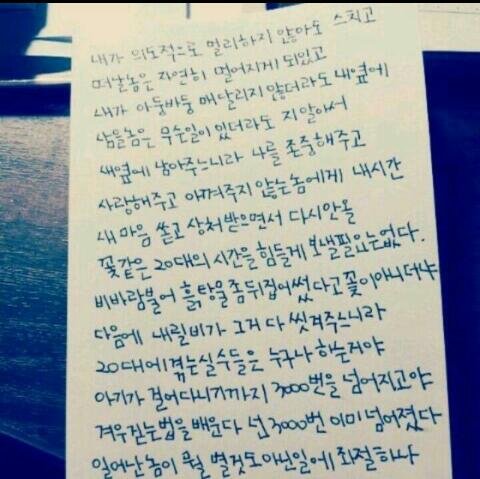 내가 의도적으로 멀리하지 않아도 스치고
떠날놈은 자연히 멀어지게 되있고
내가 아둥바둥 매달리지 않더라도 내옆에
남을놈은 무슨일이 있더라도 지알아서
내옆에 남아주느니라 나를 존중해주고
사랑해주고 아껴주지 않는놈에게 내시간
내 마음 쏟고 상처받으면서 다시안올
꽃같은 20대의 시간을 힘들게 보낼필요는없다.
비바람불어 흙탕물좀뒤집어썼다고꽃이아니더냐
다음에 내릴비가 그거 다 씻겨주느니라
20대에겪는실수들은 누구나 하는거야
아기가 걸어다니기까지 3000번을 넘어지고야
겨우걷는법을배운다 넌3000번 이미넘어졌다
일어난놈이 뭘 별것도아닌일에 좌절하나